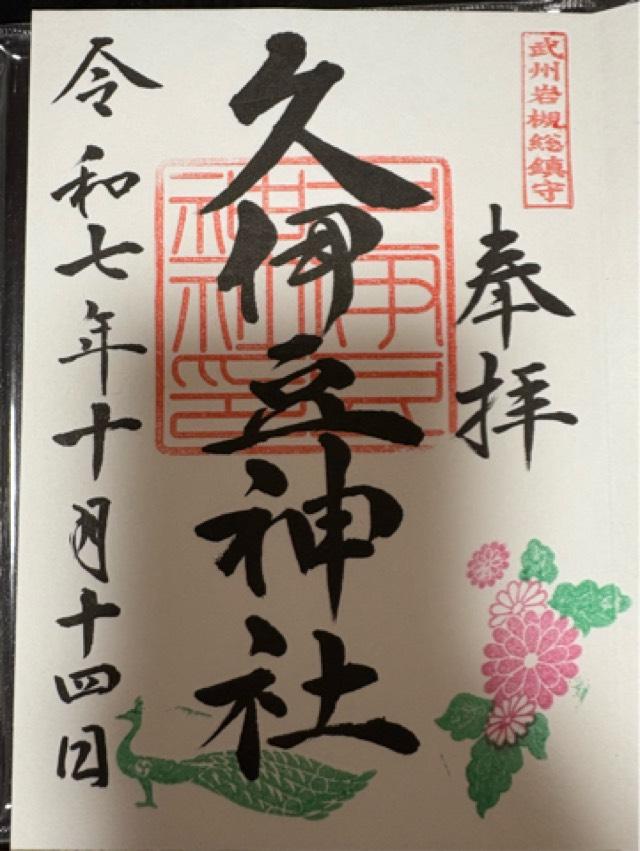 武州岩槻総鎮守
奉拝
久伊豆神社
令和七年十月十四日